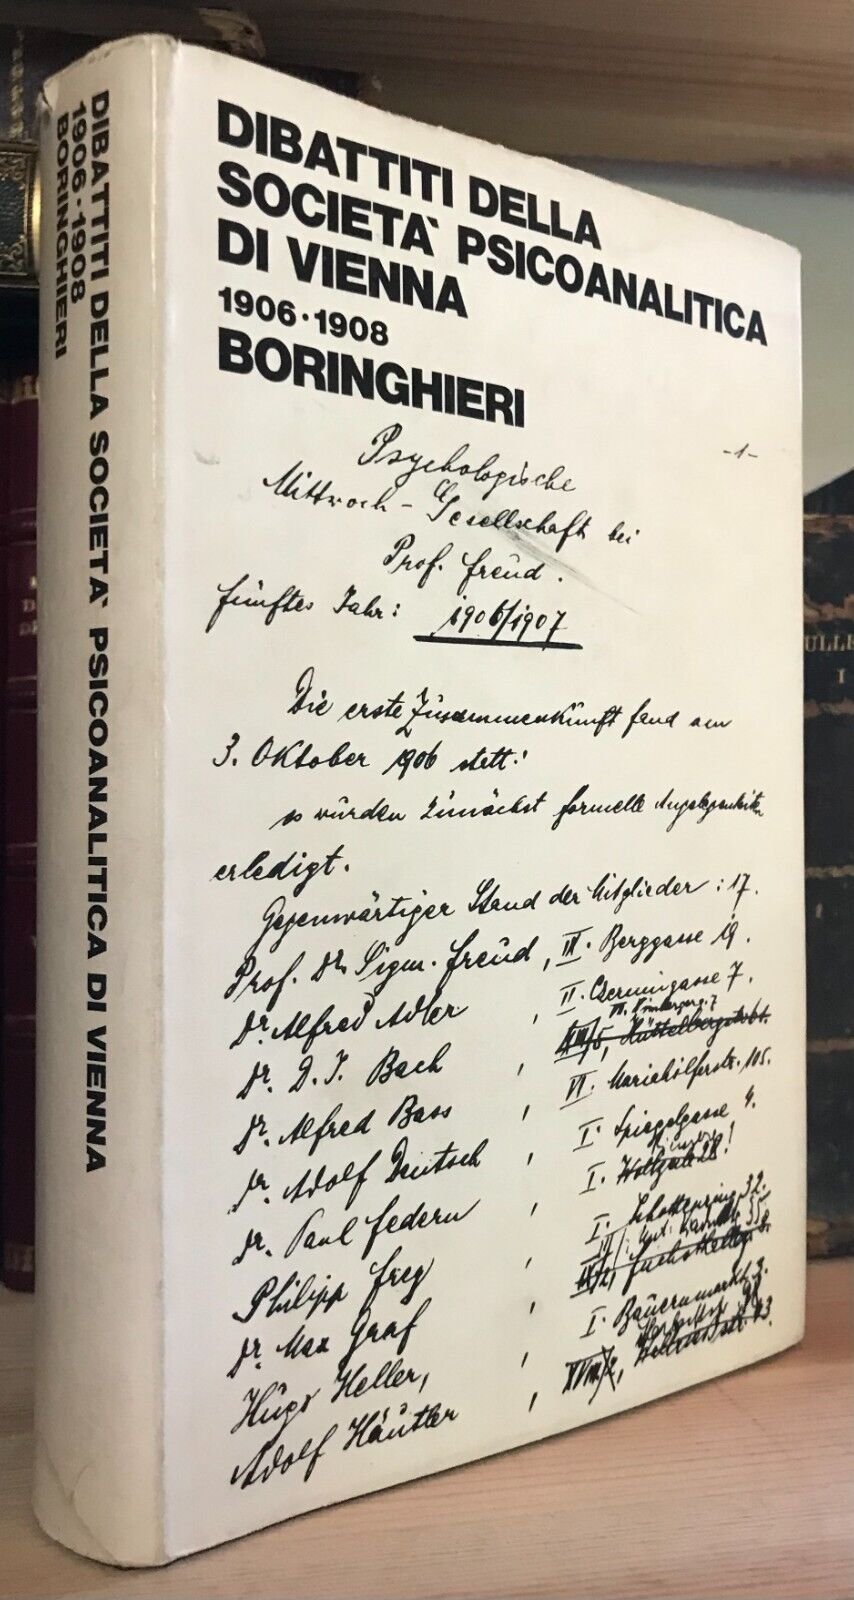 DIBATTITI DELLA SOCIETA` PSICOANALITICA DI VIENNA
1906·1908
BORINGHIERI
DIBATTITI DELLA
SOCIETA` PSICOANALITICA
DI VIENNA
1906·1908
BORINGHIERI
-1-
Psychologische
Mittwoch-Gesellschaft bei
Prof. Freud.
fünftes Jahr: 1906/1907
Die erste Zusammenkunft fand am
3. Oktober 1906 statt:
es wurden zunächst formelle Angelegenheiten
erledigt.
Gegenwärtiger Stand der Mitglieder: 17.
Prof. Dr. Sigm. Freud, IX. Berggasse 19.
Dr. Alfred Adler, II. Czerningasse 7.
Dr. D. J. Bach, XIII/5, Hüttelbergstr. 61.
Dr. Alfred Bass, VI. Mariahilferstr. 105.
Dr. Adolf Deutsch, I. Spiegelgasse 4.
Dr. Paul Federn, I. Wollzeile 28!
Philipp Frey, I. Schottenring 32.
Dr. Max Graf,
Hugo Heller, I. Bauernmarkt 3.
Adolf Häutler,
ULL
I